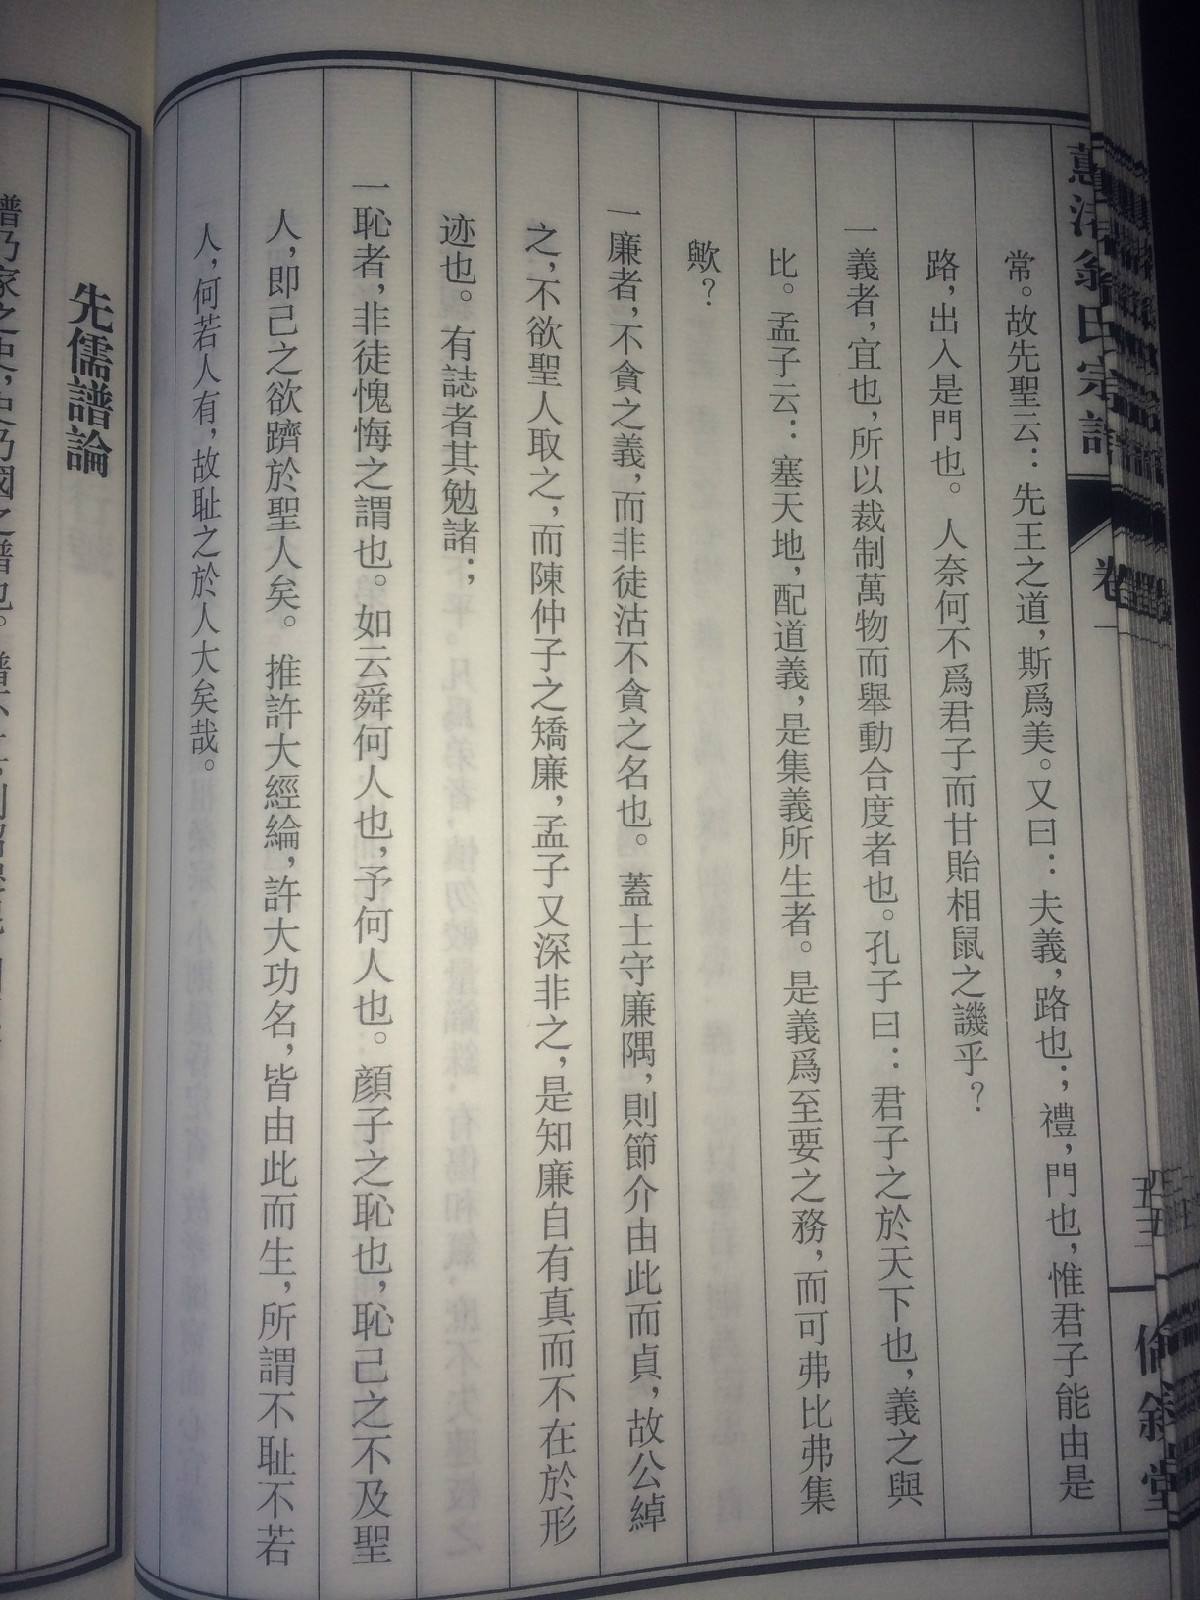 氏宗譜
卷一
倫敘堂
常。故先聖云：先王之道，斯爲美。又曰：夫義，路也；禮，門也，惟君子能由是
路，出入是門也。人奈何不爲君子而甘貽相鼠之譏乎？
一義者，宜也，所以裁制萬物而舉動合度者也。孔子曰：君子之於天下也，義之與
比。孟子云：塞天地，配道義，是集義所生者。是義爲至要之務，而可弗比弗集
歟？
一廉者，不貪之義，而非徒沽不貪之名也。蓋士守廉隅，則節介由此而貞，故公綽
之，不欲聖人取之，而陳仲子之矯廉，孟子又深非之，是知廉自有真而不在於形
迹也。有誌者其勉諸；
一恥者，非徒愧悔之謂也。如云舜何人也，予何人也。顔子之恥也，恥己之不及聖
人，即己之欲躋於聖人矣。推許大經綸，許大功名，皆由此而生，所謂不耻不若
人，何若人有，故耻之於人大矣哉。
先儒譜論
譜乃家之史，史乃國之譜也。